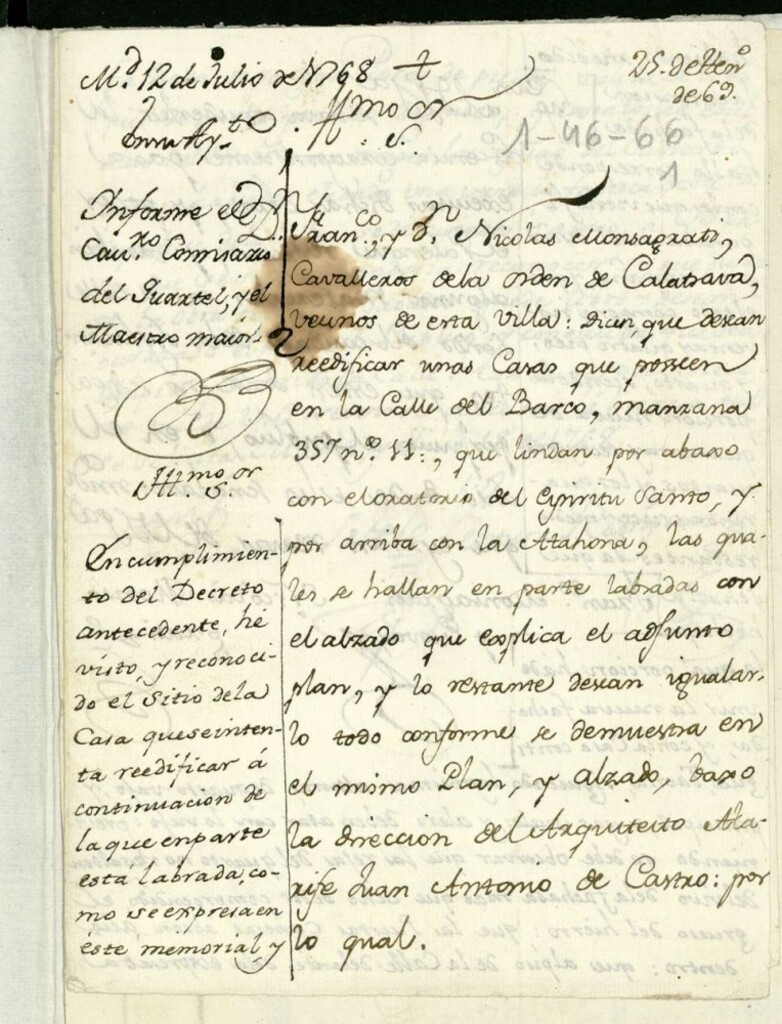 M.d 12 de Julio de 1768
25. de Hen.o
de 69.
en su Ay.to
Ill.mo S.or
1-46-66
1
Informe el
Cav.ro Comisario
del Quartel, y el
Maestro maior
Ill.mo S.or
En cumplimien-
to del Decreto
antecedente, hé
visto, y reconoci-
do el Sitio de la
Casa que se inten-
ta reedificar á
continuacion de
la que en parte
está labrada, co-
mo se expresa en
éste memorial, y
D.n Fran.co, y d.n Nicolas Monsagrati,
Cavalleros de la orden de Calatrava,
vecinos de esta Villa: dicen, que desean
reedificar unas Casas que posseen
en la Calle del Barco, manzana
357 n.o 11:, que lindan por abaxo
con el oratorio del Espiritu Santo, y
por arriba con la Atahona, las qua-
les se hallan en parte labradas con
el alzado que explica el adjunto
plan, y lo restante desean igualar-
lo todo conforme se demuestra en
el mismo Plan, y alzado, baxo
la direccion del Arquitecto Ala-
rife Juan Antonio de Castro: por
lo qual.